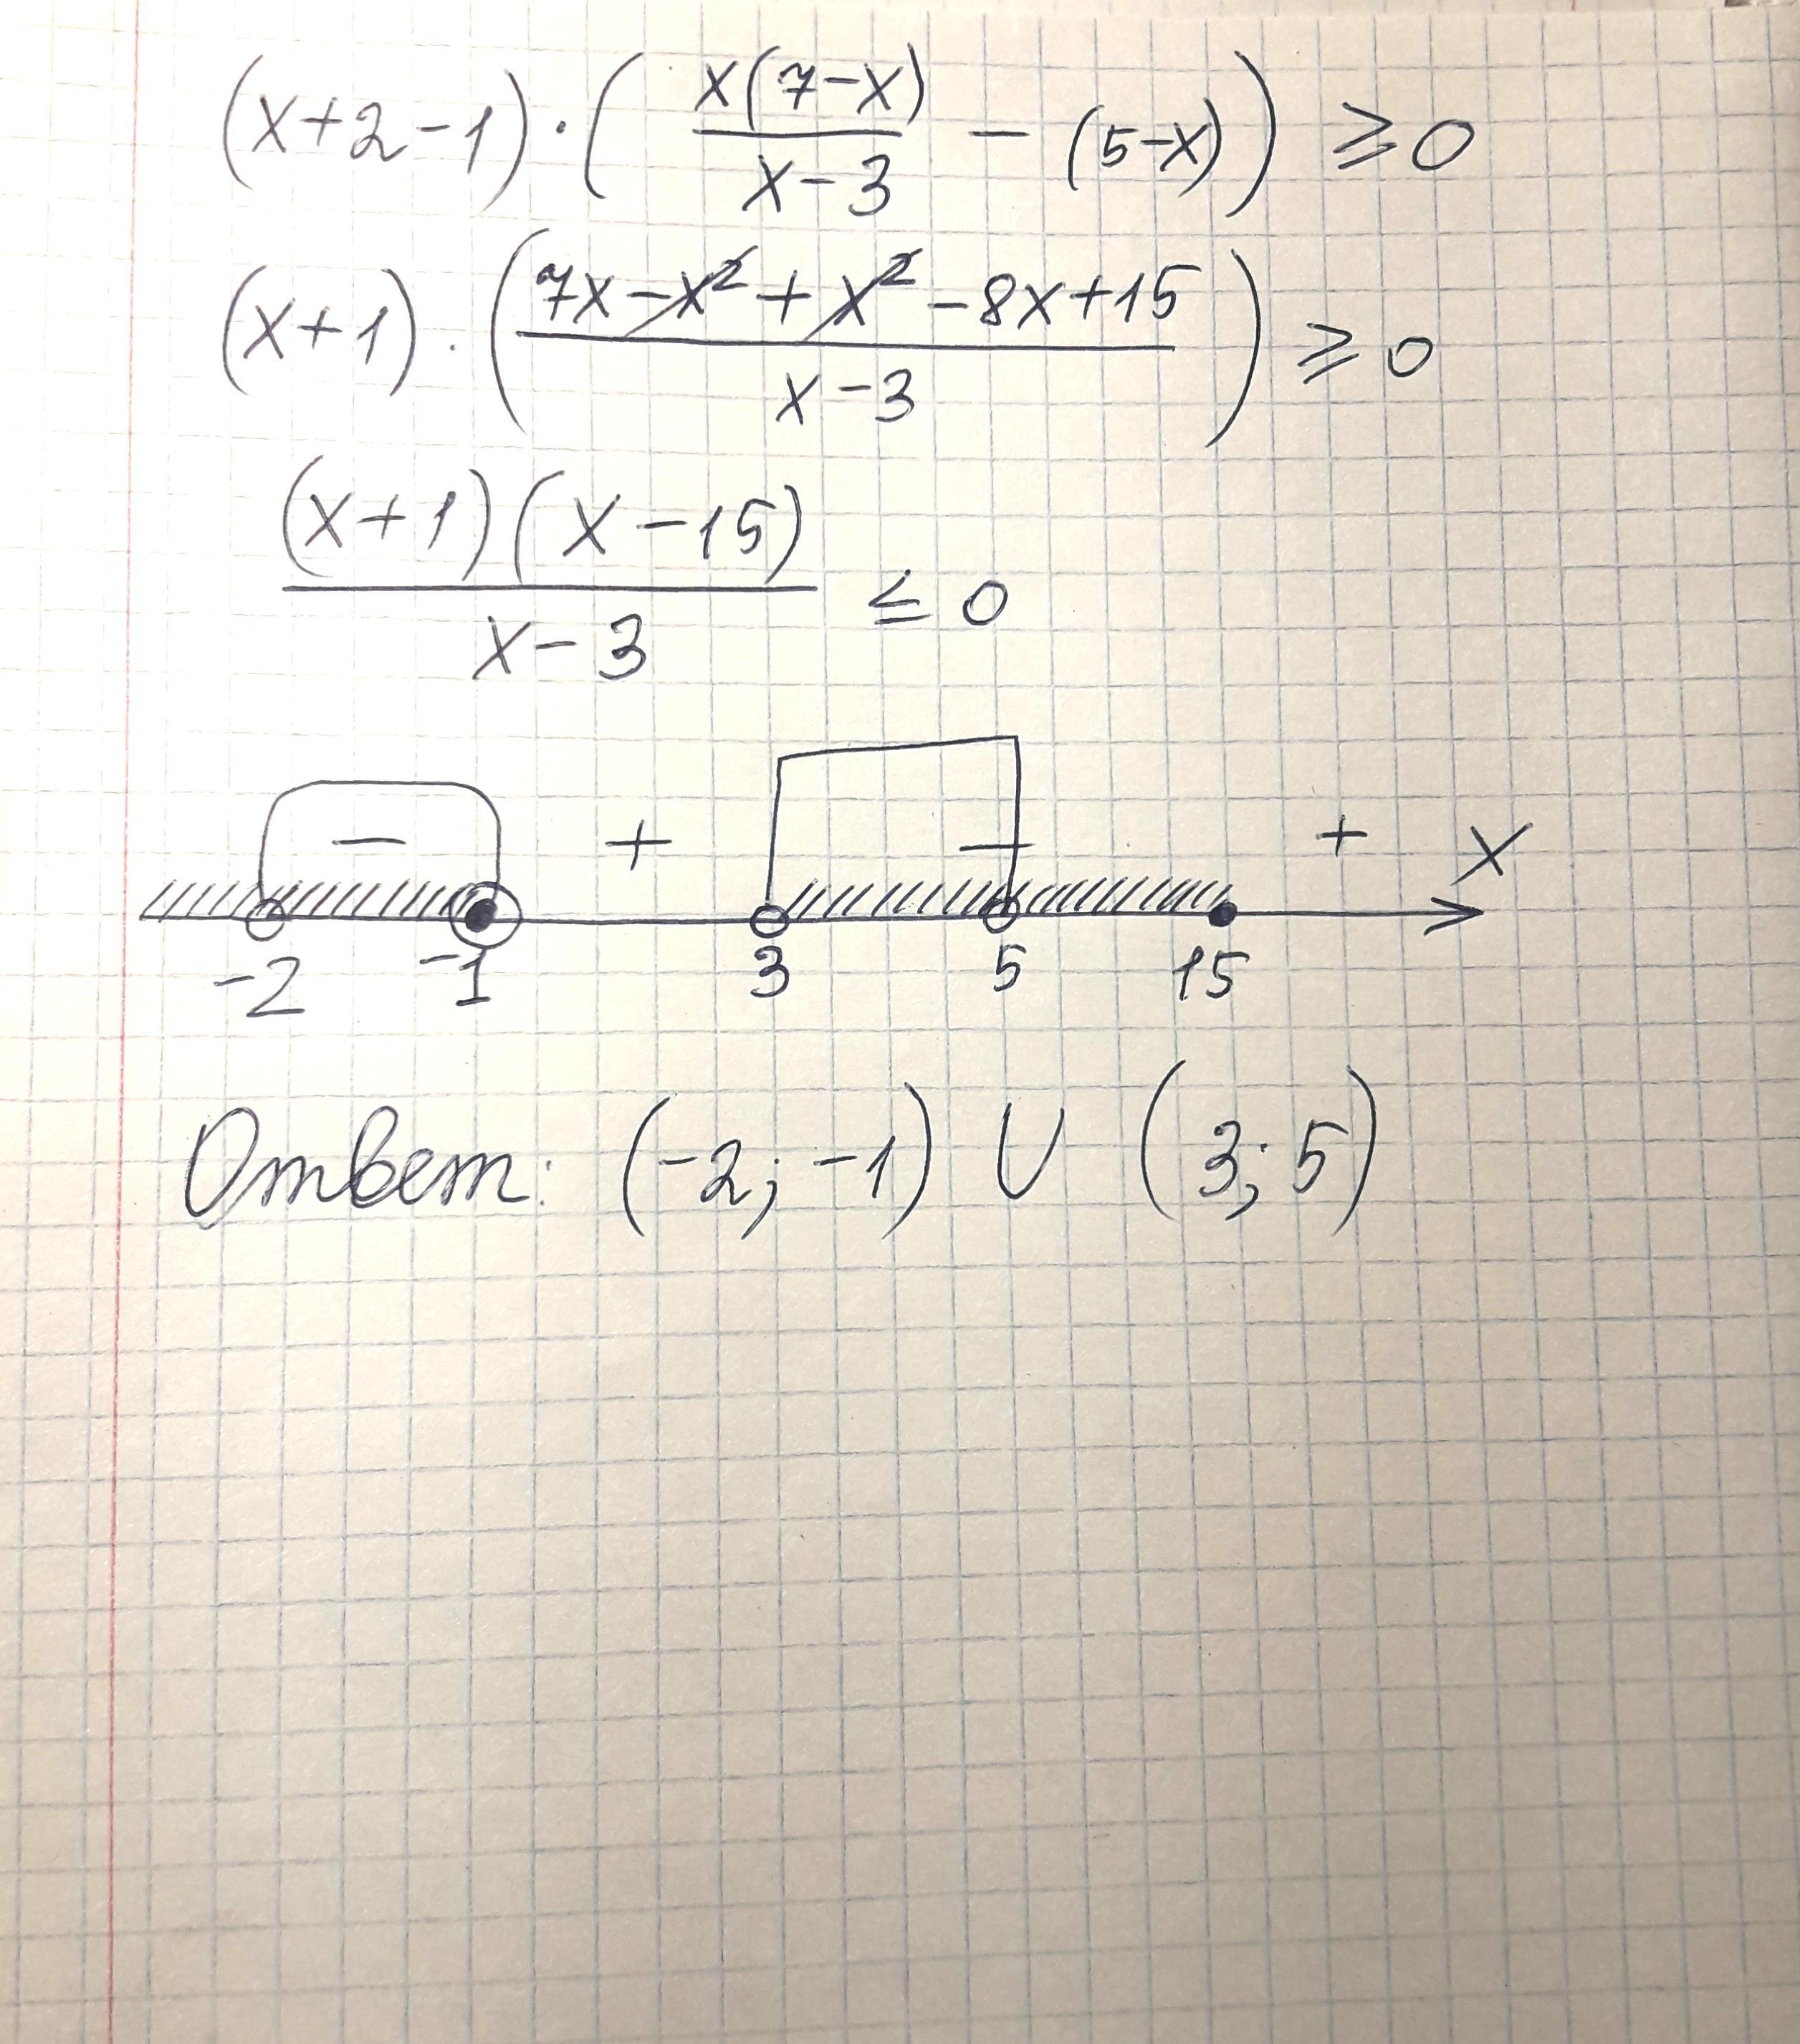 (x+2-1)·(x(7-x)/(x-3) - (5-x)) ⩾ 0
(x+1)·((7x-x²+x²-8x+15)/(x-3)) ⩾ 0
(x+1)(x-15)/(x-3) ≤ 0
− + − + x
-2 -1 3 5 15
Ответ: (-2; -1) ∪ (3; 5)